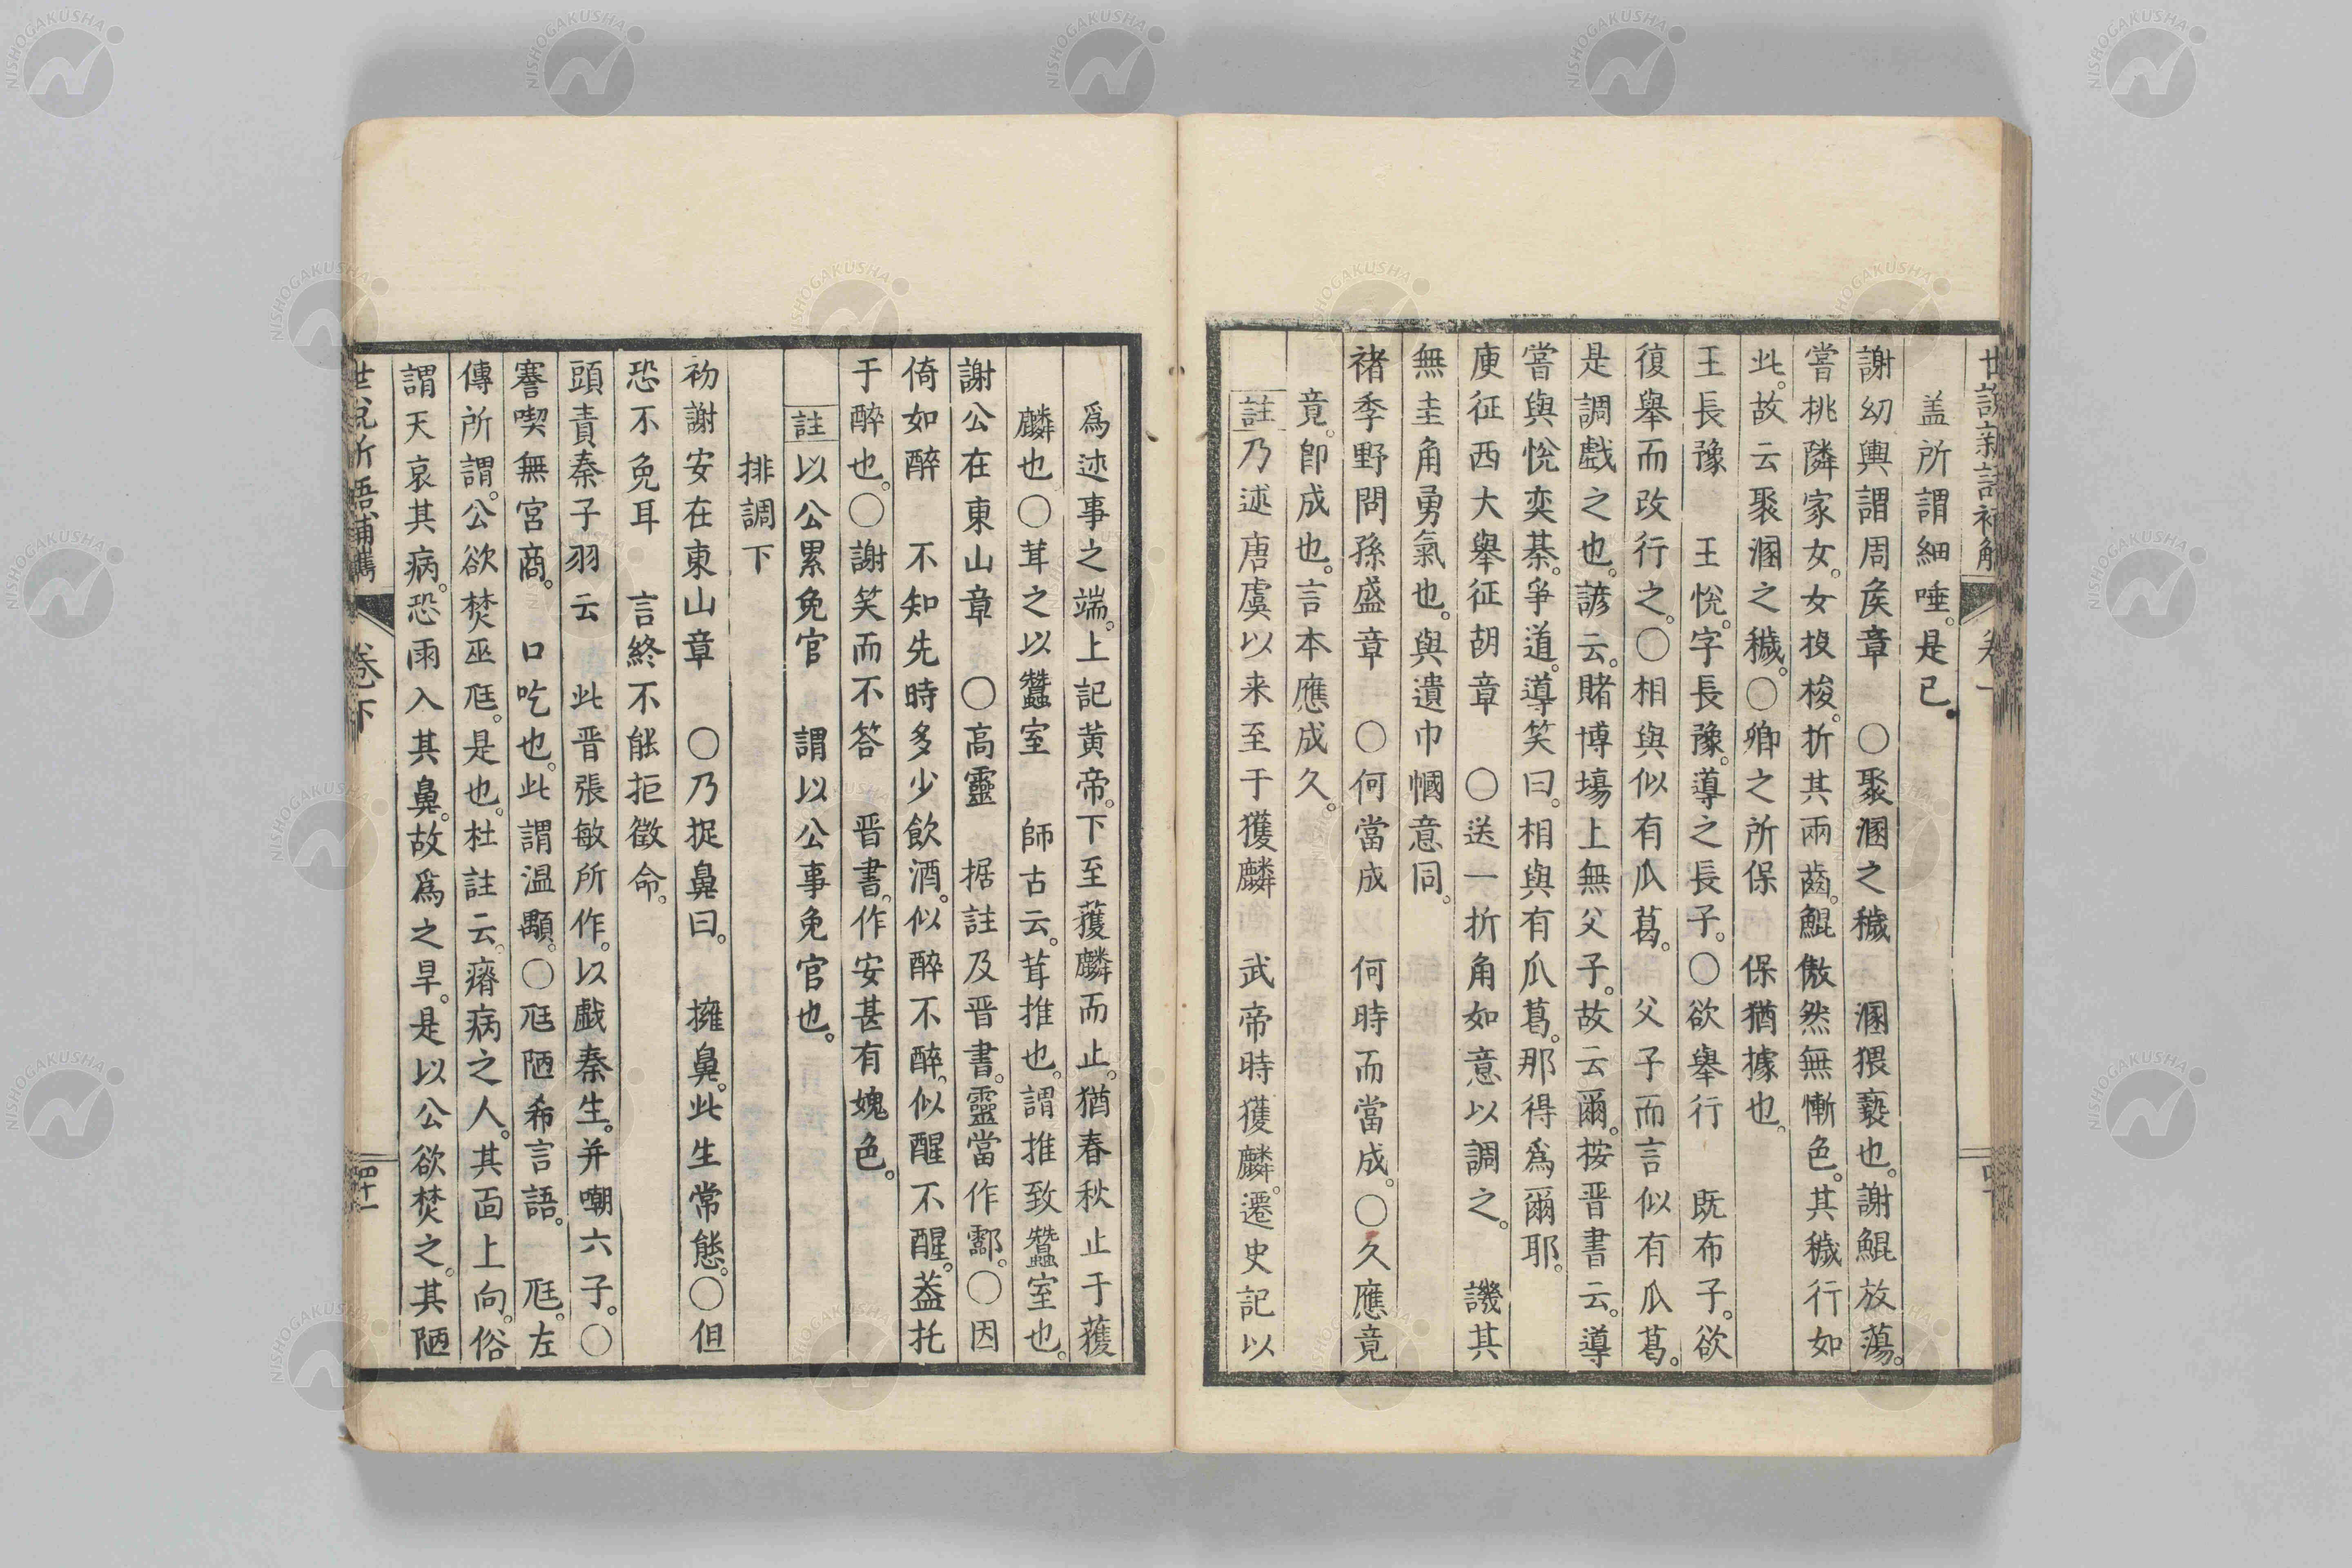 盖所謂細唾。是已。
謝幼輿謂周矦章　〇聚溷之穢　溷猥褻也。謝鯤放蕩。
嘗挑隣家女。女投梭。折其兩齒。鯤傲然無慚色。其穢行如
此。故云聚溷之穢。〇卿之所保　保猶據也。
王長豫　王悅。字長豫。導之長子。〇欲舉行　既布子。欲
復舉而改行之。〇相與似有瓜葛。　父子而言似有瓜葛。
是調戲之也。諺云。賭博場上無父子。故云爾。按晋書云。導
嘗與悅奕棊。爭道。導笑曰。相與有瓜葛。那得爲爾耶。
庾征西大舉征胡章　〇送一折角如意以調之。　譏其
無圭角勇氣也。與遺巾幗意同。
褚季野問孫盛章　〇何當成　何時而當成。〇久應竟
竟。卽成也。言本應成久。
註乃述唐虞以来至于獲麟　武帝時獲麟。遷史記以
爲述事之端。上記黄帝。下至獲麟而止。猶春秋止于獲
麟也〇茸之以蠶室　師古云。茸推也。謂推致蠶室也。
謝公在東山章　〇高靈　据註及晋書。靈當作酃。〇因
倚如醉　不知先時多少飲酒。似醉不醉。似醒不醒。葢托
于醉也。〇謝笑而不答　晋書。作安甚有媿色。
註以公累免官　謂以公事免官也。
排調下
初謝安在東山章　〇乃捉鼻曰。　擁鼻。此生常態。〇但
恐不免耳　言終不能拒徵命。
頭責秦子羽云　此晋張敏所作。以戲秦生。并嘲六子。〇
謇喫無宮商。　口吃也。此謂温顒。〇尫陋希言語。　尫。左
傳所謂。公欲焚巫尫。是也。杜註云。瘠病之人。其面上向。俗
謂天哀其病。恐雨入其鼻。故爲之旱。是以公欲焚之。其陋
卷下
四十一